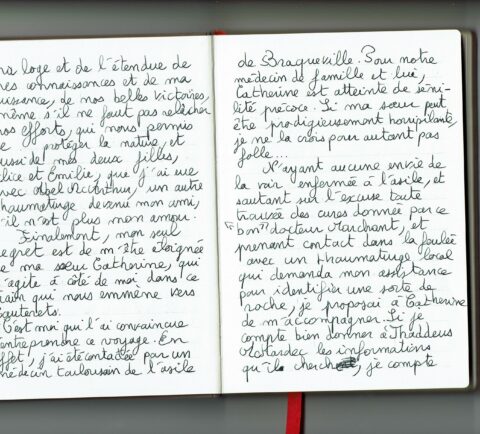 loge et de l'étendue de
connaissances et de ma
de nos belles victoires,
même s'il ne faut pas relâcher
nos efforts, qui nous permis
protéger la nature, et
aussi de mes deux filles,
et Emilie, que j'ai eue
avec Abel McArthur, un autre
thaumaturge devenu mon ami,
il n'est plus mon amour.
Finalement, mon seul
regret est de m'être éloignée
ma sœur Catherine, qui
s'agite à côté de moi dans ce
train qui nous emmène vers
Cauterets.
C'est moi qui l'ai convaincue
d'entreprendre ce voyage. En
effet, j'ai été contactée par un
médecin toulousain de l'asile
de Braqueville. Pour notre
médecin de famille et lui,
Catherine est atteinte de séni-
lité précoce. Si ma sœur peut
être prodigieusement horripilante,
je ne la crois pour autant pas
folle...
N'ayant aucune envie de
la voir enfermée à l'asile, et
sautant sur l'excuse toute
trouvée des cures donnée par ce
"bon" docteur Marchant, et
prenant contact dans la foulée
avec un thaumaturge local
qui demanda mon assistance
pour identifier une sorte de
roche, je proposai à Catherine
de m'accompagner. Si je
compte bien donner à Thaddeus
les informations
qu'il, je compte